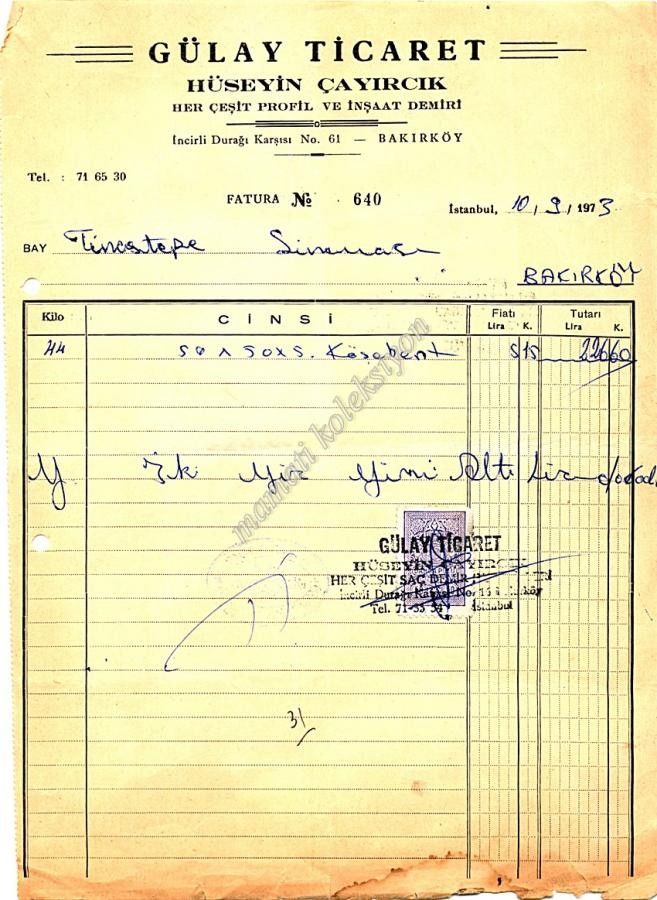 GÜLAY TİCARET
HÜSEYİN ÇAYIRCIK
HER ÇEŞİT PROFİL VE İNŞAAT DEMİRİ
İncirli Durağı Karşısı No. 61 — BAKIRKÖY
Tel. : 71 65 30
FATURA № 640
İstanbul, 10 / 9 / 1973
BAY Tınaztepe Sineması
BAKIRKÖY
Kilo CİNSİ Fiatı Lira K. Tutarı Lira K.
44 50 x 50x5. Köşebent 5 15 226 60
Y İk Yüz Yirmi Altı Lira
mamati koleksiyon
GÜLAY TİCARET
HÜSEYİN ÇAYIRCIK
HER ÇEŞİT SAÇ DEMİR
İncirli Durağı Karşısı No.
Tel. 71 İstanbul
31